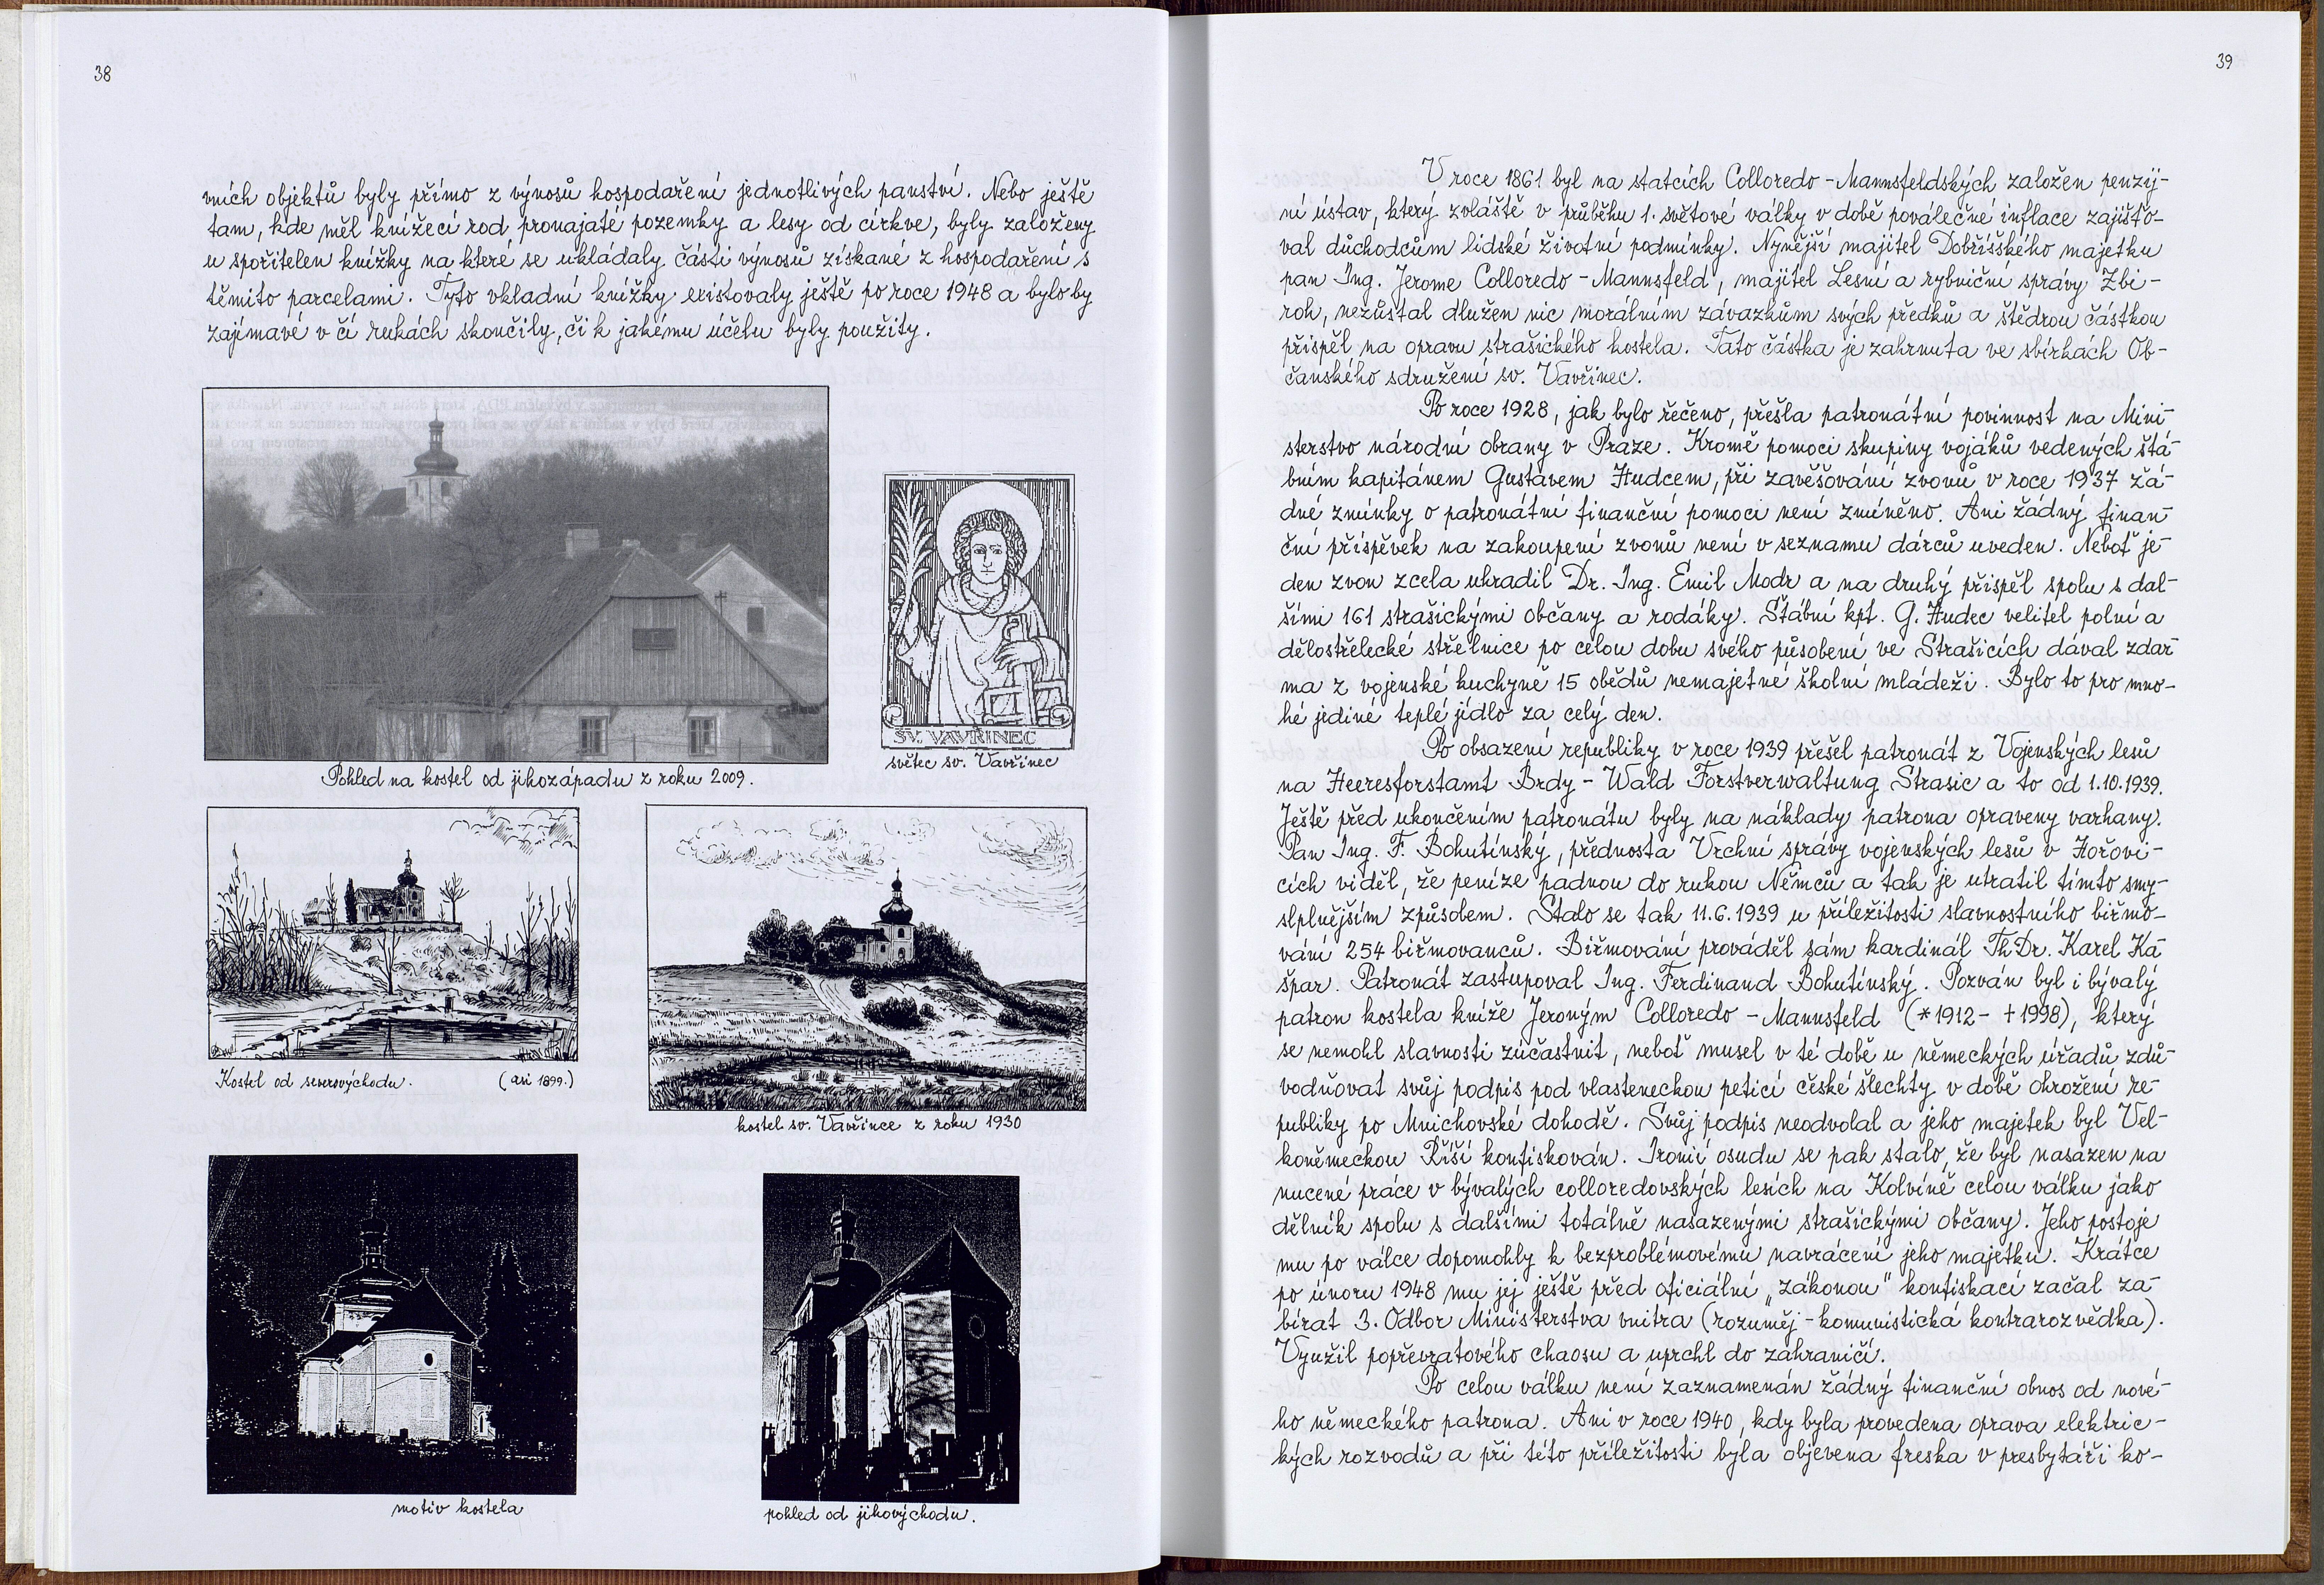 38
vních objektů byly přímo z výnosů hospodaření jednotlivých panství. Nebo ještě
tam, kde měl knížecí rod pronajaté pozemky a lesy od církve, byly založeny
u spořitelen knížky na které se ukládaly části výnosů získané z hospodaření s
těmito parcelami. Tyto vkladní knížky existovaly ještě po roce 1948 a bylo by
zajímavé v čí rukách skončily, či k jakému účelu byly použity.
Pohled na kostel od jihozápadu z roku 2009.
SV. VAVŘINEC
světec sv. Vavřinec
Kostel od severovýchodu. (asi 1899.)
kostel sv. Vavřince z roku 1930
motiv kostela
pohled od jihovýchodu.
39
V roce 1861 byl na statcích Colloredo-Mannsfeldských založen penzij-
ní ústav, který zvláště v průběhu 1. světové války v době poválečné inflace zajišťo-
val důchodcům lidské životní podmínky. Nynější majitel Dobříšského majetku
pan Ing. Jerome Colloredo-Mannsfeld, majitel Lesní a rybniční správy Zbi-
roh, nezůstal dlužen nic morálním závazkům svých předků a štědrou částkou
přispěl na opravu strašického kostela. Tato částka je zahrnuta ve sbírkách Ob-
čanského sdružení sv. Vavřinec.
Po roce 1928, jak bylo řečeno, přešla patronátní povinnost na Mini-
sterstvo národní obrany v Praze. Kromě pomoci skupiny vojáků vedených štá-
bním kapitánem Gustavem Hudcem, při zavěšování zvonů v roce 1937 žá-
dné zmínky o patronátní finanční pomoci není zmíněno. Ani žádný finan-
ční příspěvek na zakoupení zvonů není v seznamu dárců uveden. Neboť je-
den zvon zcela uhradil Dr. Ing. Emil Modr a na druhý přispěl spolu s dal-
šími 161 strašickými občany a rodáky. Štábní kpt. G. Hudec velitel polní a
dělostřelecké střelnice po celou dobu svého působení ve Strašicích dával zdar-
ma z vojenské kuchyně 15 obědů nemajetné školní mládeži. Bylo to pro mno-
hé jediné teplé jídlo za celý den.
Po obsazení republiky v roce 1939 přešel patronát z Vojenských lesů
na Heeresforstamt Brdy-Wald Forstverwaltung Strasic a to od 1.10.1939.
Ještě před ukončením patronátu byly na náklady patrona opraveny varhany.
Pan Ing. F. Bohutínský, přednosta Vrchní správy vojenských lesů v Hořovi-
cích viděl, že peníze padnou do rukou Němců a tak je utratil tímto smy-
slplnějším způsobem. Stalo se tak 11.6.1939 u příležitosti slavnostního biřmo-
vání 254 biřmovanců. Biřmování prováděl sám kardinál ThDr. Karel Ka-
špar. Patronát zastupoval Ing. Ferdinand Bohutínský. Pozván byl i bývalý
patron kostela kníže Jeroným Colloredo-Mannsfeld (*1912-†1998), který
se nemohl slavnosti zúčastnit, neboť musel v té době u německých úřadů zdů-
vodňovat svůj podpis pod vlasteneckou peticí české šlechty v době ohrožení re-
publiky po Mnichovské dohodě. Svůj podpis neodvolal a jeho majetek byl Vel-
koněmeckou Říší konfiskován. Ironií osudu se pak stalo, že byl nasazen na
nucené práce v bývalých colloredovských lesích na Kolvíně celou válku jako
dělník spolu s dalšími totálně nasazenými strašickými občany. Jeho postoje
mu po válce dopomohly k bezproblémovému navrácení jeho majetku. Krátce
po únoru 1948 mu jej ještě před oficiální „zákonou" konfiskací začal za-
bírat 3. Odbor Ministerstva vnitra (rozuměj-komunistická kontrarozvědka).
Využil popřevratového chaosu a uprchl do zahraničí.
Po celou válku není zaznamenán žádný finanční obnos od nové-
ho německého patrona. Ani v roce 1940, kdy byla provedena oprava elektric-
kých rozvodů a při této příležitosti byla objevena freska v presbytáři ko-